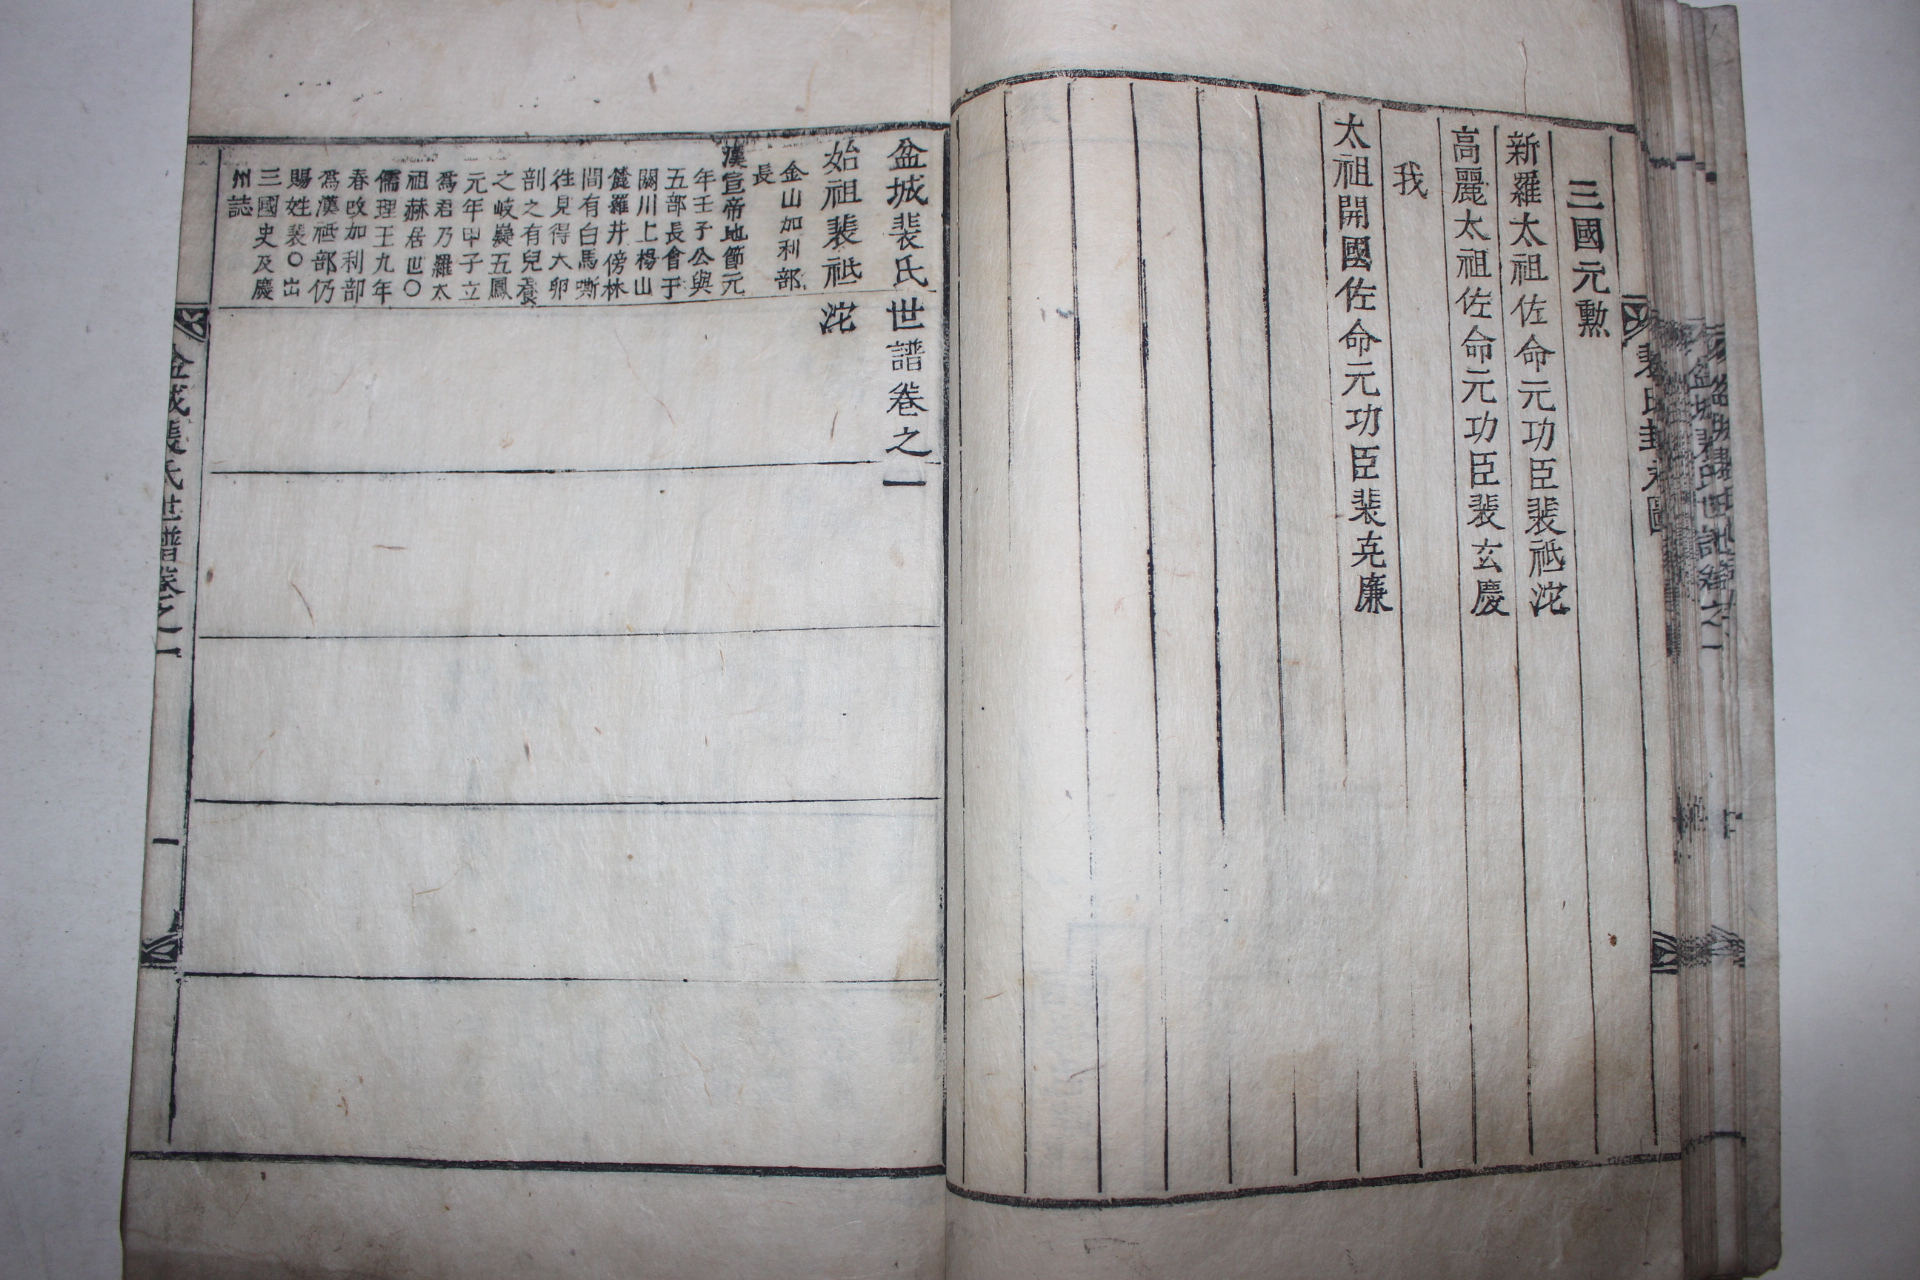 三國元勲
新羅太祖佐命元功臣裴祗沱
高麗太祖佐命元功臣裴玄慶
我
太祖開國佐命元功臣裴克廉
盆城裴氏世譜卷之一
始祖裴祗沱
金山加利部
長
漢宣帝地節元
年壬子公與
五部長會于
閼川上楊山
麓羅井傍林
間有白馬嘶
徃見得大卵
剖之有兒養
之岐嶷五鳳
元年甲子立
爲君乃羅太
祖赫居世○
儒理王九年
春改加利部
爲漢祗部仍
賜姓裴○出
三國史及慶
州誌
盆城裴氏世譜卷之一
一